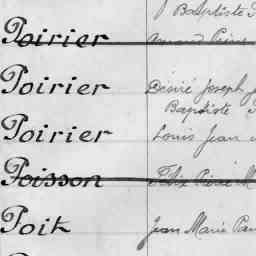 Baptiste
Poirier
Poirier Désiré Joseph
Baptiste
Poirier Louis Jean
Poisson Félix Pierre M
Poit Jean Marie